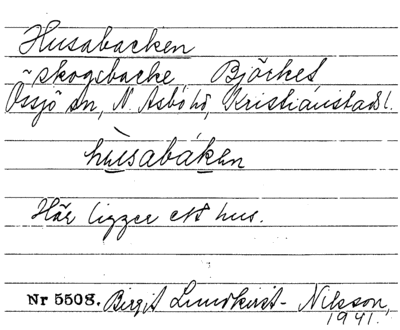 Husabacken
skogsbacke, Björket
Össjö sn, N. Åsbo hd, Kristianstads l.
hùsabáken
Här ligger ett hus.
Nr 5508. Birgit Lundkvist-Nilsson,
1941.